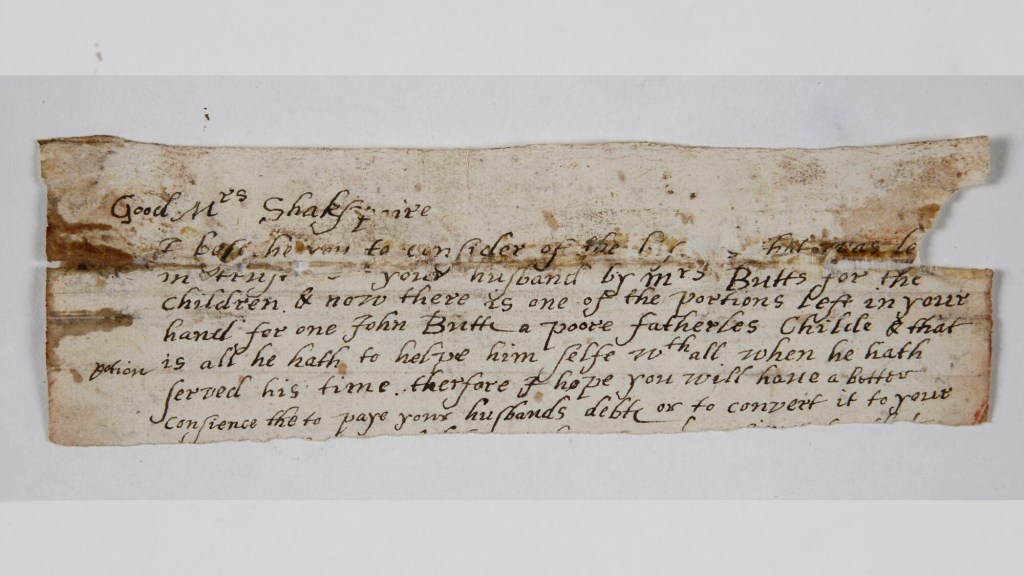 Good Mrs Shakspaire
I bese he you to consider of the that was le
in trust your husband by Mrs Butts for the
children & now there is one of the portions left in your
hand for one John Butte a poore fatherles Childe & that
petion is all he hath to helpe him selfe wth all when he hath
served his time therfore I hope you will have a better
consience the to paye your husbands debte or to convert it to your